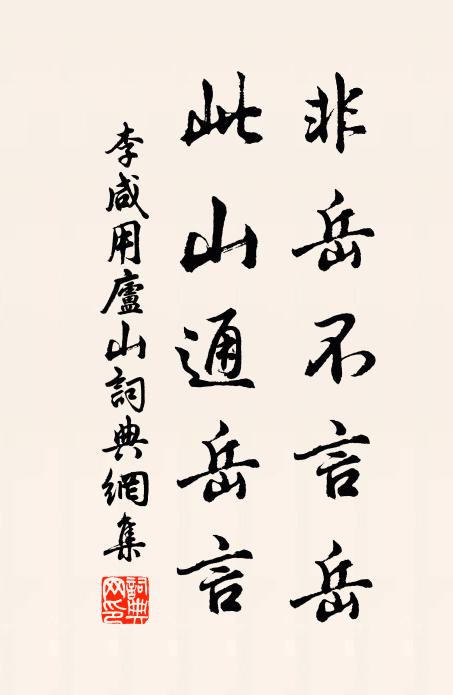 非岳不言岳
此山通岳言
李咸用廬山詞典網集
詞典網印